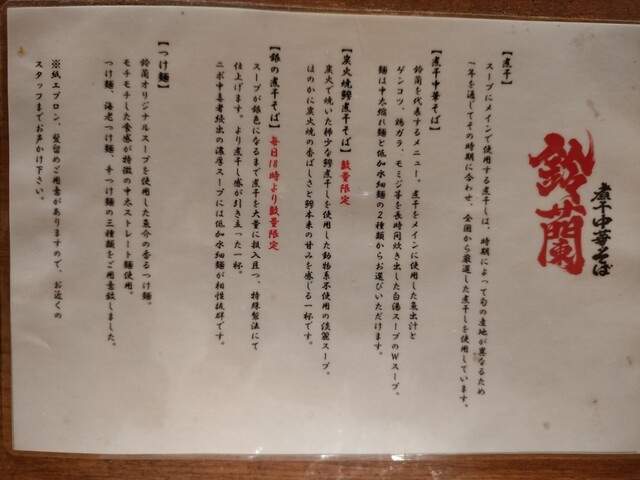 煮干中華そば
鈴蘭
【煮干】
スープにメインで使用する煮干しは、時期によって旬の産地が異なるため
一年を通じてその時期に合わせ、全国から厳選した煮干しを使用しています。
【煮干中華そば】
鈴蘭を代表するメニュー。煮干をメインに使用した魚出汁と
ゲンコツ、鶏ガラ、モミジ等を長時間炊き出した白湯スープのWスープ。
麺は中太縮れ麺と低加水細麺の2種類からお選びいただけます。
【炭火焼鰺煮干そば】数量限定
炭火で焼いた稀少な鰺煮干しを使用した動物系不使用の淡麗スープ。
ほのかに炭火焼の香ばしさと鰺本来の甘みを感じる一杯です。
【銀の煮干そば】毎日18時より数量限定
スープが銀色になるまで煮干を大量に投入且つ、特殊製法にて
仕上げます。より煮干し感が引き立った一杯。
ニボ中毒者続出の濃厚スープには低加水細麺が相性抜群です。
【つけ麺】
鈴蘭オリジナルスープを使用した魚介の香るつけ麺。
モチモチした食感が特徴の中太ストレート麺使用。
つけ麺、海老つけ麺、辛つけ麺の三種類をご用意致しました。
※紙エプロン、髪留めご用意がありますので、お近くの
スタッフまでお声かけ下さい。